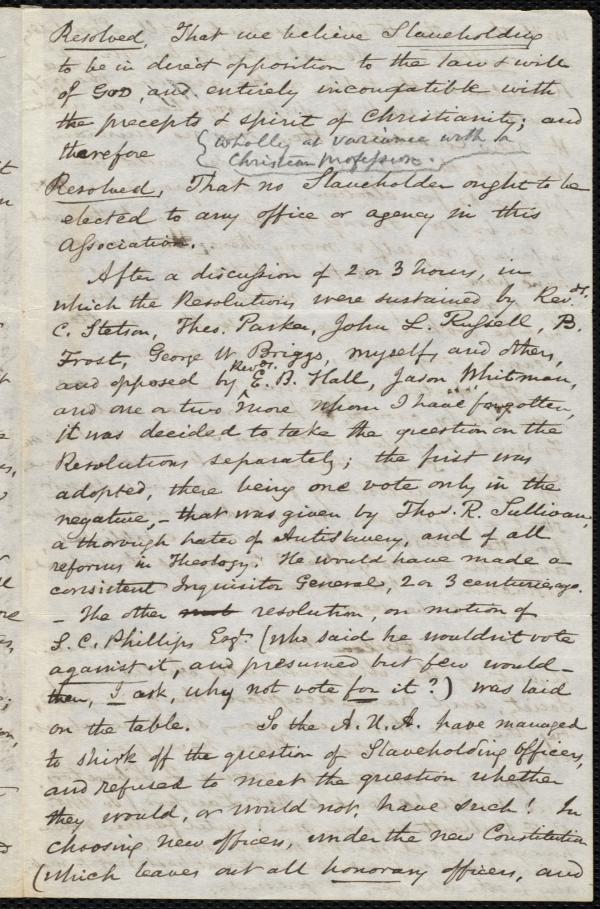 Resolved, That we believe Slaveholding
to be in direct opposition to the law & will
of God, and entirely incompatible with
the precepts & spirit of Christianity; and
therefore {wholly at variance with a
Christian profession.
Resolved, That no Slaveholder ought to be
elected to any office or agency in this
Association.
After a discussion of 2 or 3 hours, in
which the Resolutions were sustained by Rev. Mr.
C. Stetson, Theo. Parker, John L. Russell, B.
Frost, George W. Briggs, myself, and others,
and opposed by Rev. Mr. E. B. Hall, Jason Whitman,
and one or two more whom I have forgotten,
it was decided to take the question on the
Resolutions separately; the first was
adopted, there being one vote only in the
negative,- that was given by Thos. R. Sullivan,
a thorough hater of Antislavery, and of all
reforms in Theology. He would have made a
consistent Inquisitor General, 2 or 3 centuries ago.
- The other resolution, on motion of
S. C. Phillips Esqr. (who said he wouldn't vote
against it, and presumed but few would-
then, I ask, why not vote for it?) was laid
on the table. So the A. U. A. have managed
to shirk off the question of Slaveholding officers,
and refused to meet the question whether
they would, or would not, have such! In
choosing new officers, under the new Constitution
(which leaves out all honorary officers, and